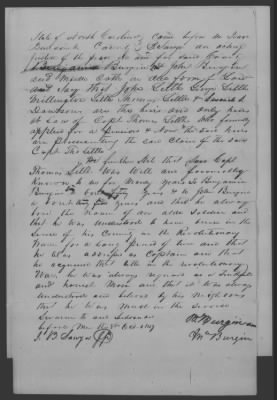 State of North Carolina} Came before me Isaac
Buncombe County} B Sawyer an acting
Justice of the peace in and for said County
Benjamin Burgin & John Burgin
and Made Oath in due form of Law
and Say that John Lytle George Lytle
Millington Lytle Thomas Lytle &
Dawson are the heirs and only heirs
at Law of Capt Thomas Lytle Who formerly
applied for a pension & Now the said heirs
are prosecuting the Claim of the said
Capt Tho Lytle
We further State that Said Capt
Thomas Lytle Was Well and personally
Known to us for Many years to Benjamin
Burgin years & to John Burgin
about years and that he always
bore the Name of an older Soldier and
that he was understood to have been in the
Service of his Country in the Revolutionary
War for a long period of time and that
he Was Captain and that
he acquired that title in the revolutionary
War he was always regarded as a
and honest Man and that it was always
understood and believed by his Neighbors
that he Was Much in the Service
Sworn to and Subscribed
before Me this Oct 1849
I. B Sawyer JP
Burgin
Jno Burgin